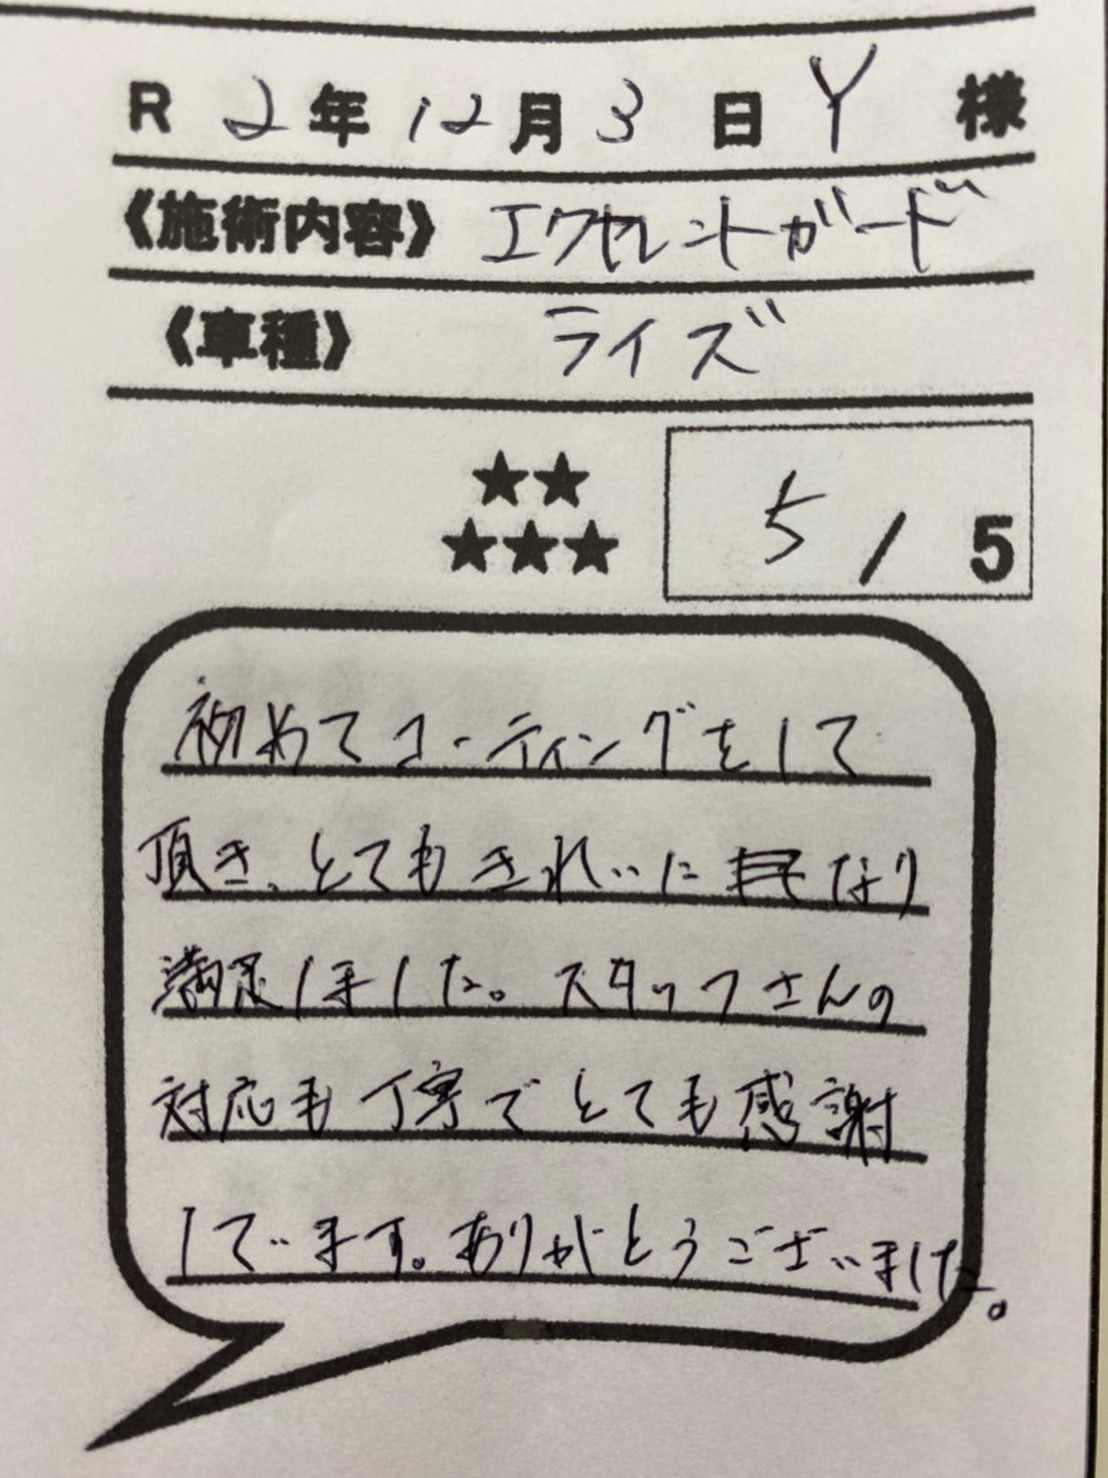 R 2年12月3日 Y 様
《施術内容》 エクセレントガード
《車種》 ライズ
★★
★★★ 5/5
初めてコーティングをして
頂き、とてもきれいになり
満足しました。スタッフさんの
対応も丁寧でとても感謝
しています。ありがとうございました。